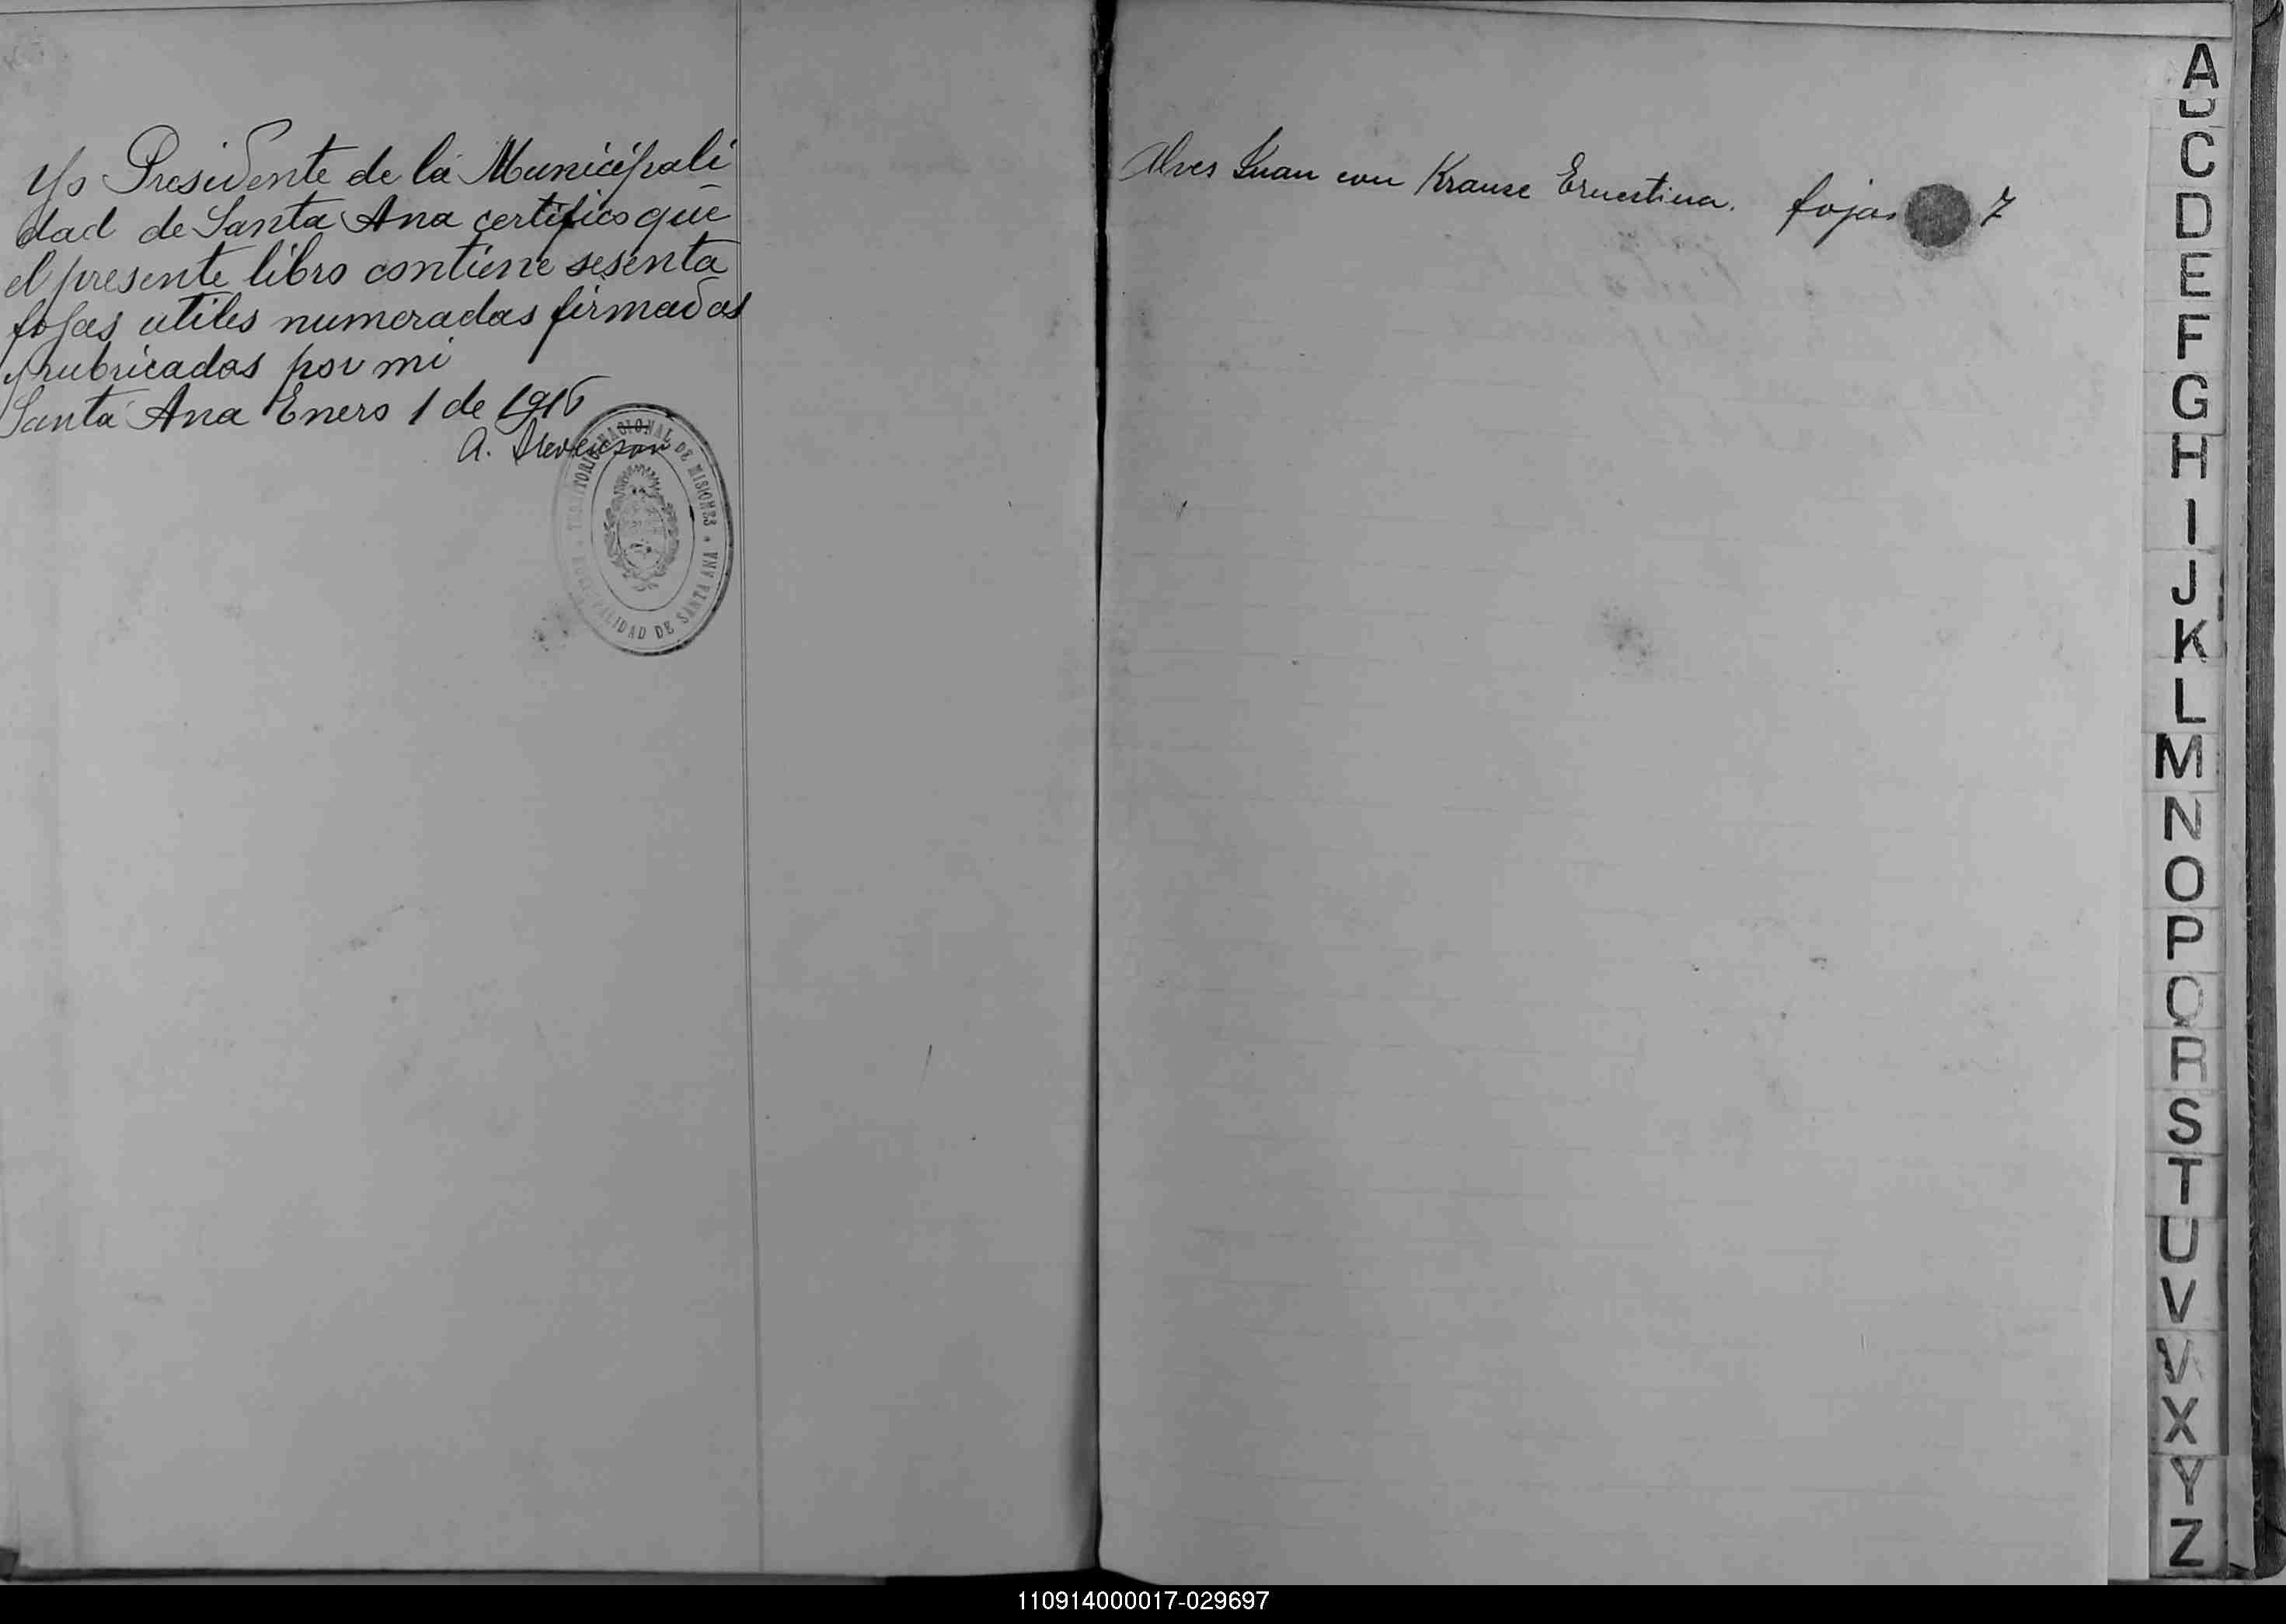 Yo Presidente de la Municipali
dad de Santa Ana certifico que
el presente libro contiene sesenta
fojas utiles numeradas firmadas
y rubricadas por mi
Santa Ana Enero 1 de 1916
A.
TERRITORIO NACIONAL DE MISIONES * MUNICIPALIDAD DE SANTA ANA *
Alves Juan con Krause Ernestina. fojas 7
A
C
D
E
F
G
H
I
J
K
L
M
N
O
P
Q
R
S
T
U
V
X
Y
Z
110914000017-029697